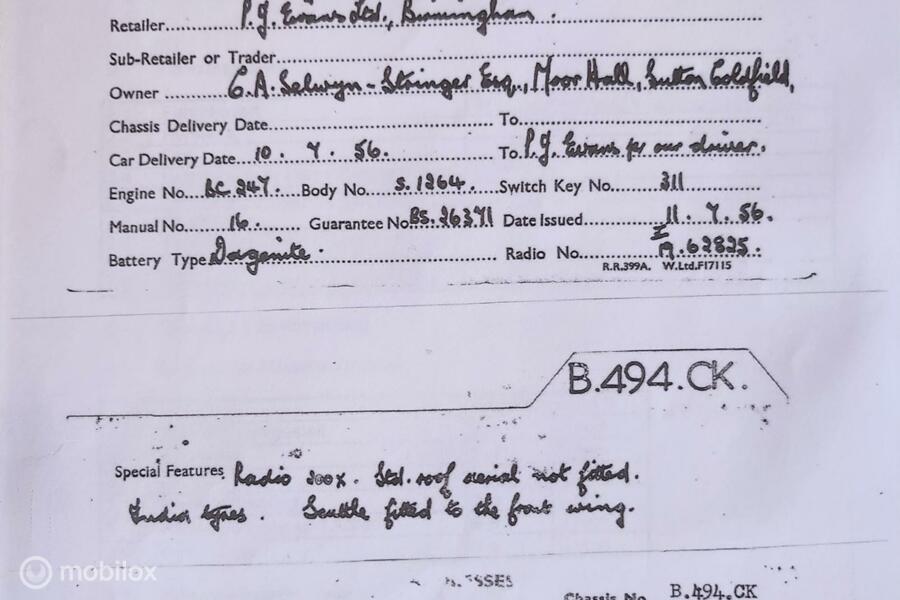 Retailer P.J. Evans Ltd., Birmingham.
Sub-Retailer or Trader
Owner C.A. Selwyn-Stringer Esq., Moor Hall, Sutton Coldfield,
Chassis Delivery Date To
Car Delivery Date 10. 7. 56. To P.J. Evans per our driver.
Engine No. BC.247. Body No. S.1264. Switch Key No. 311
Manual No. 16. Guarantee No. BS.26371 Date Issued 11. 7. 56.
Battery Type Dagenite. Radio No. A.62825.
R.R.399A. W.Ltd.F17115
B.494.CK.
Special Features Radio 200X. Std. roof aerial not fitted.
India tyres. fitted to the front wing.
Chassis No. B.494.CK
mobilox